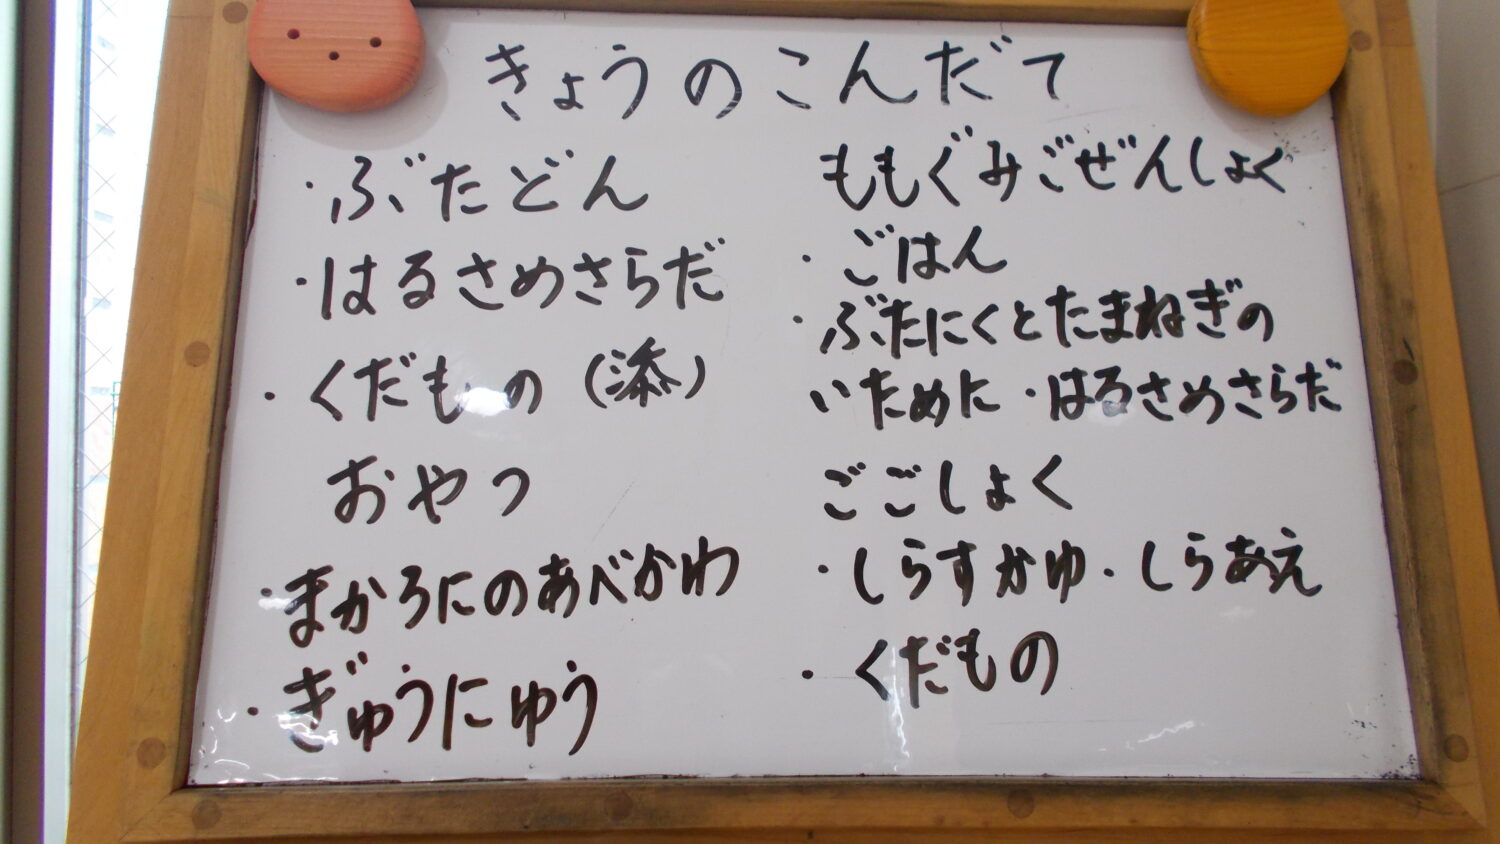 きょうのこんだて
・ぶたどん
・はるさめさらだ
・くだもの（添）
おやつ
・まかろにのあべかわ
・ぎゅうにゅう
ももぐみごぜんしょく
・ごはん
・ぶたにくとたまねぎの
いために・はるさめさらだ
ごごしょく
・しらすかゆ・しらあえ
・くだもの